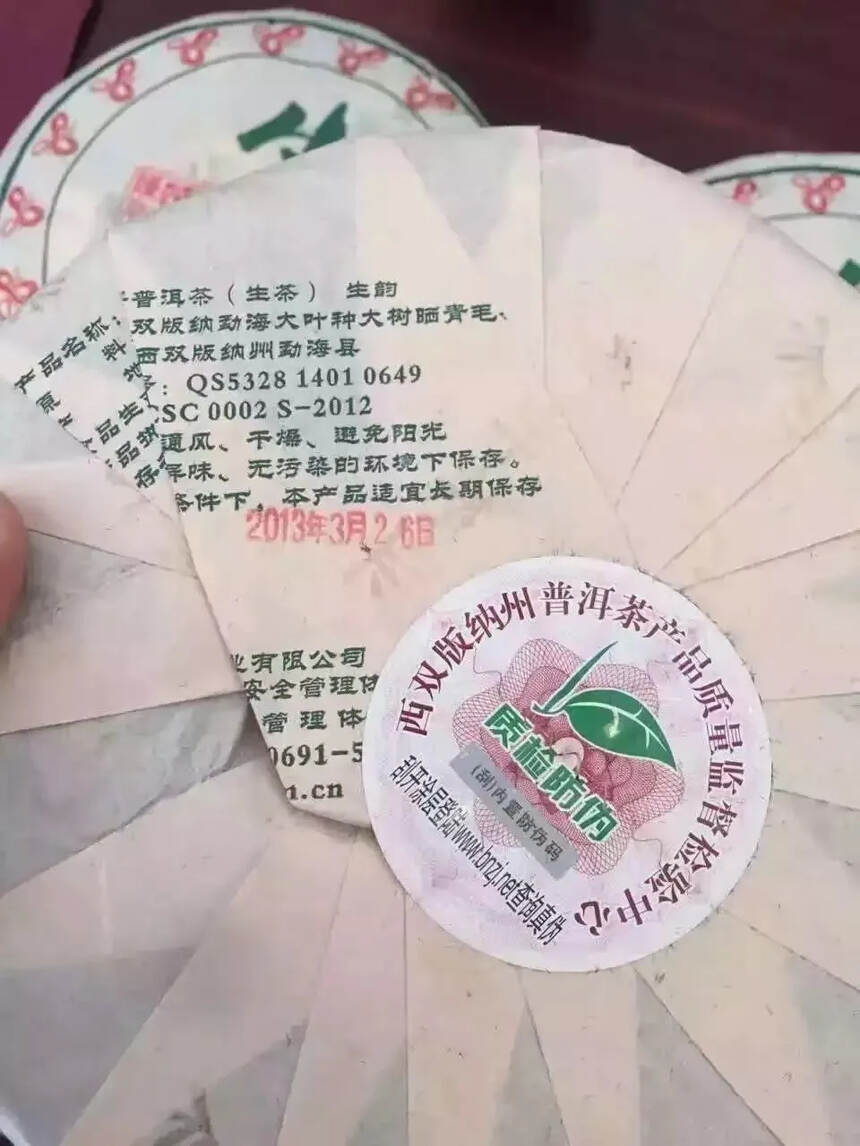 产品名称:
普洱茶（生茶） 生韵
原 料
双版纳勐海大叶种大树晒青毛
地
西双版纳州勐海县
品生
: QS5328 1401 0649
品执
SC 0002 S-2012
通风、干燥、避免阳光
存
异味、无污染的环境下保存。
条件下, 本产品适宜长期保存
2013年3月26日
业有限公司
安全管理体
管理体
0691-5
.cn
西双版纳州普洱茶产品质量监督检验中心
质检防伪
(刮)内置防伪码
刮开涂层登陆www.bnzj.net查询真伪